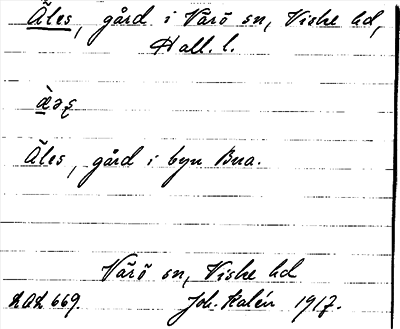 Äles, gård i Värö sn, Viske hd,
Hall. l.
Äles, gård i byn Bua.
Värö sn, Viske hd
LAL 669. Joh. Kalén 1917.